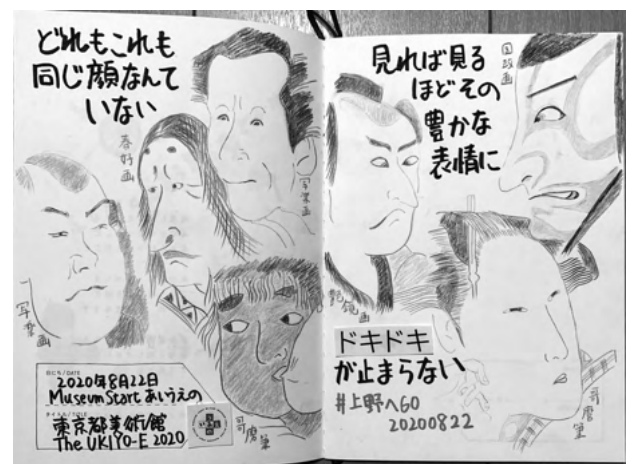 どれもこれも
同じ顔なんて
いない
春好画
写楽画
写楽画
日にち/DATE
2020年8月22日
Museum Start あいうえの
タイトル/TITLE
東京都美術館
The UKIYO-E 2020
哥麿筆
見れば見る
ほどその
豊かな
表情に
国政画
艶鏡画
ドキドキ
が止まらない
#上野へGO
20200822
哥麿筆